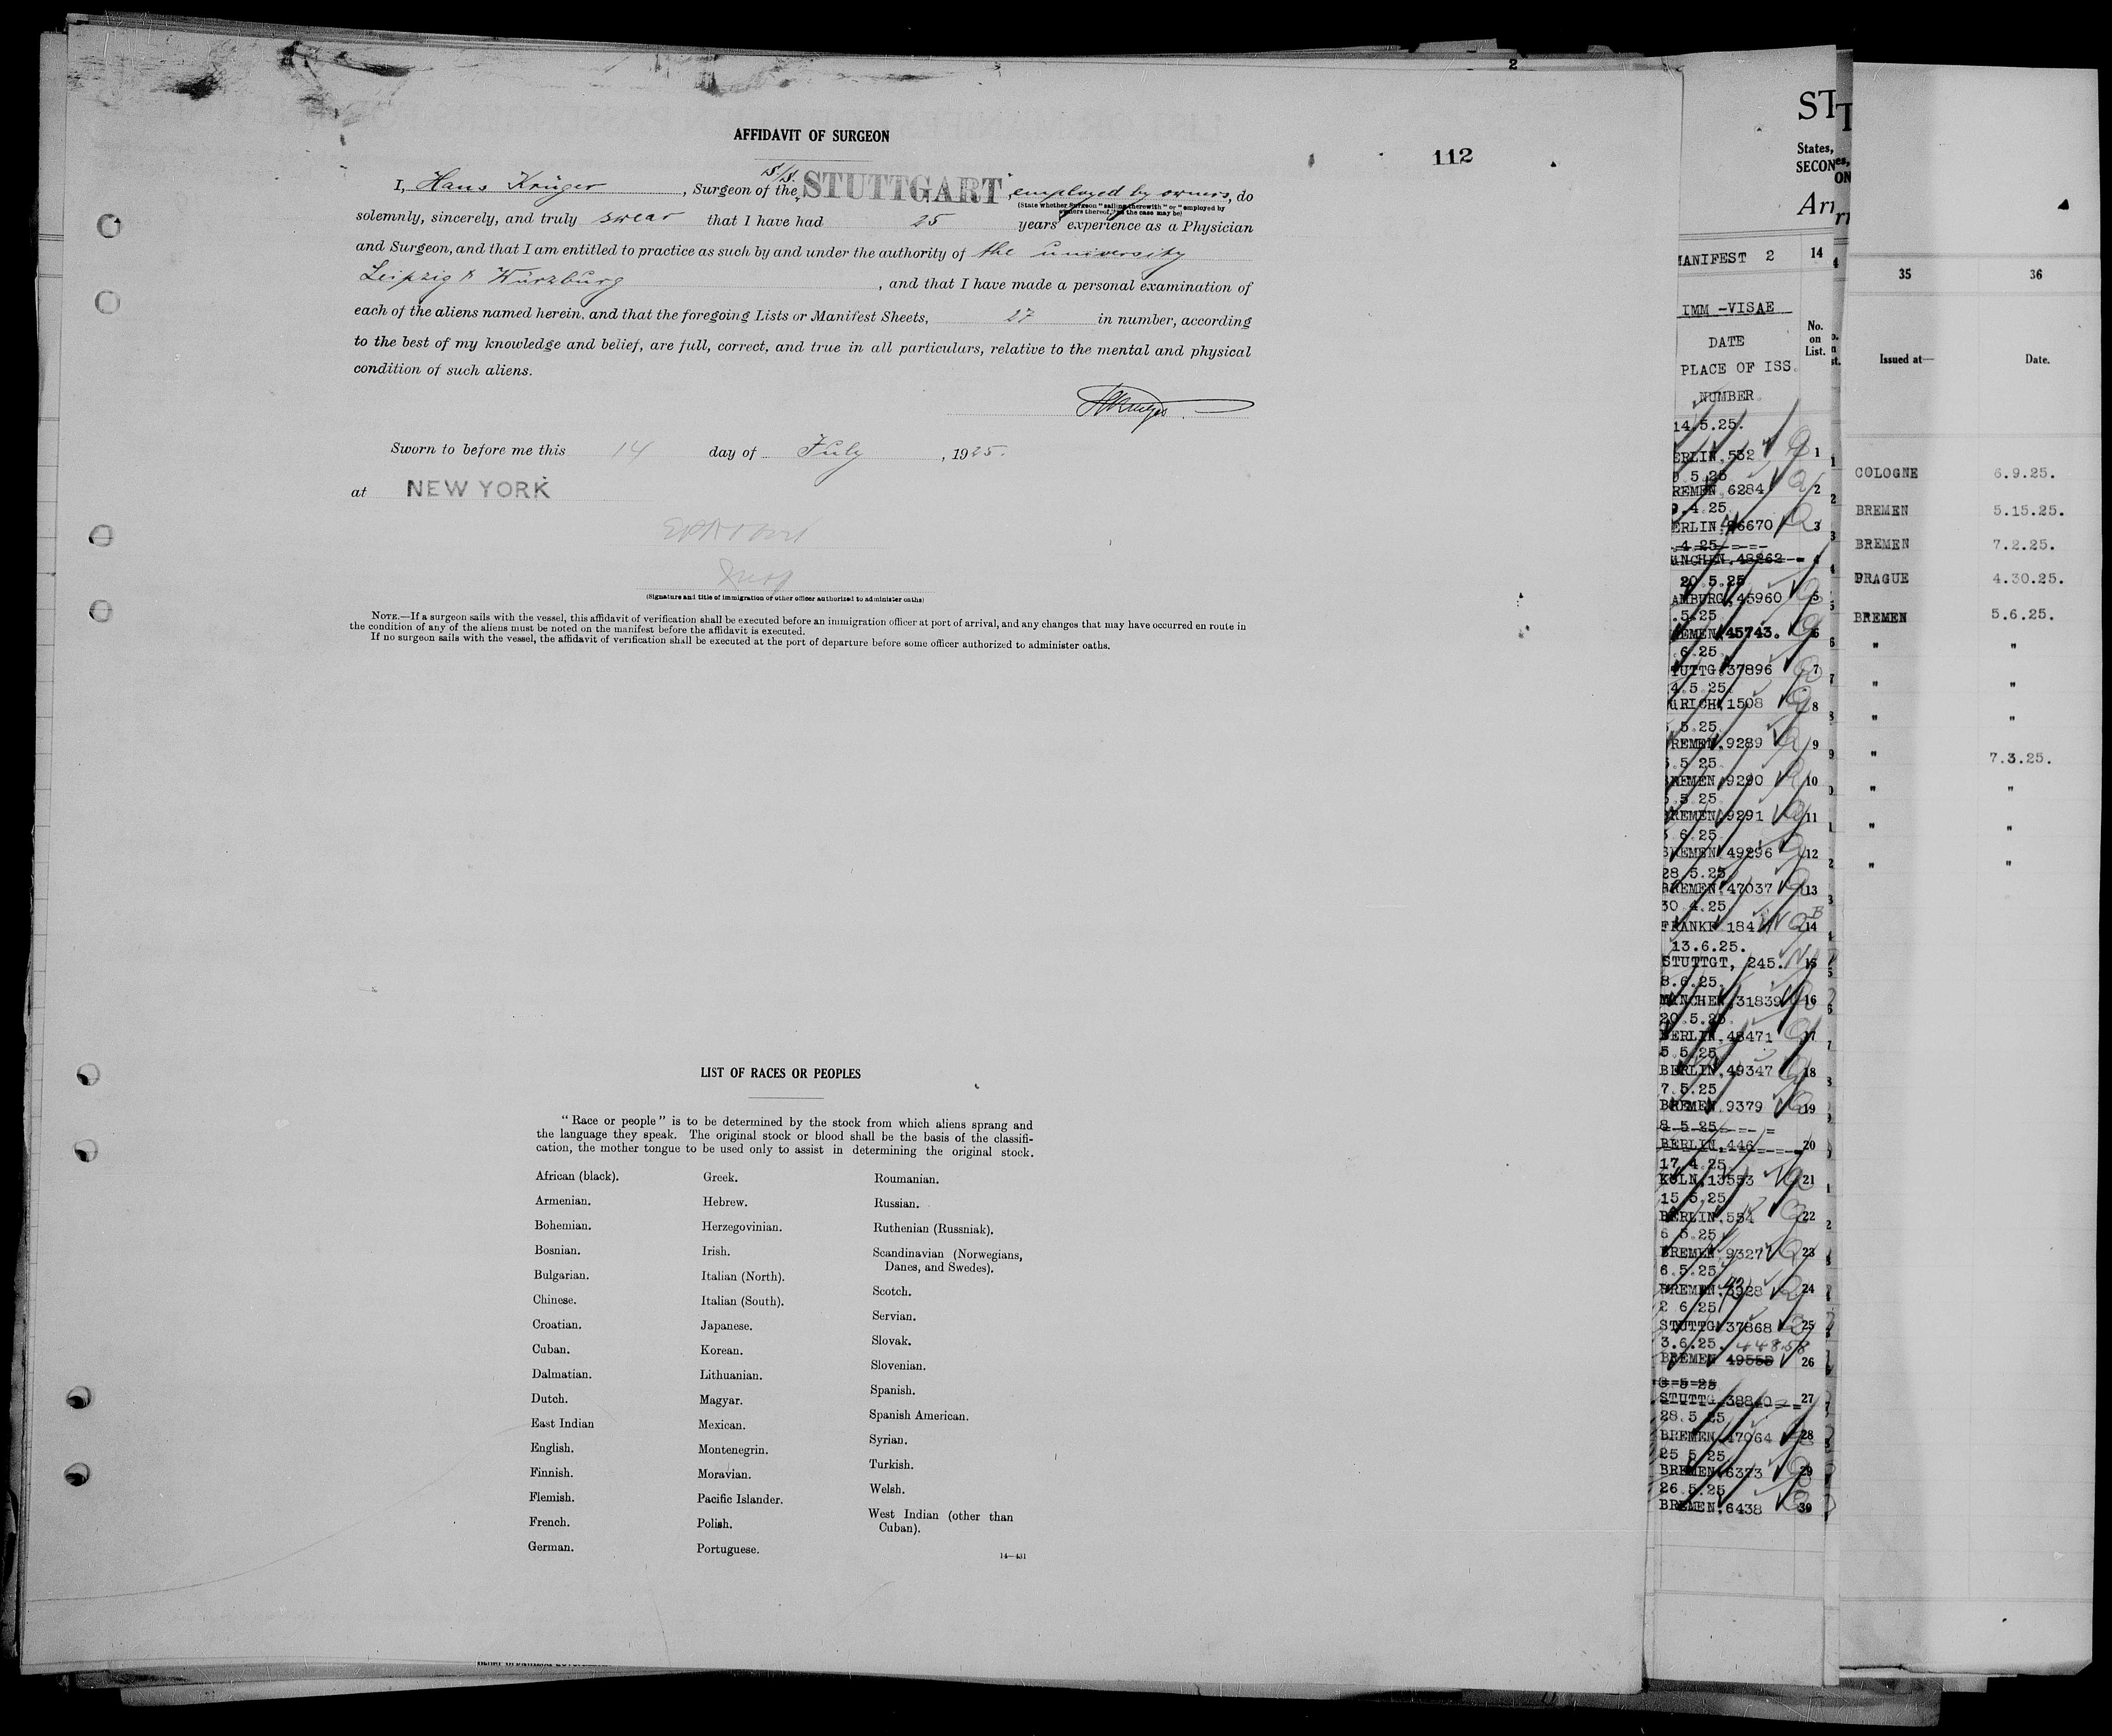 2
AFFIDAVIT OF SURGEON
112
I, Hans Krüger, Surgeon of the S/S. STUTTGART, employed by owners, do
(State whether Surgeon "sailing therewith" or "employed by
owners thereof," as the case may be)
solemnly, sincerely, and truly swear that I have had 25 years' experience as a Physician
and Surgeon, and that I am entitled to practice as such by and under the authority of the university
Leipzig & Würzburg, and that I have made a personal examination of
each of the aliens named herein, and that the foregoing Lists or Manifest Sheets, 27 in number, according
to the best of my knowledge and belief, are full, correct, and true in all particulars, relative to the mental and physical
condition of such aliens.
Sworn to before me this 14 day of July, 1925.
at NEW YORK
Insp
(Signature and title of immigration or other officer authorized to administer oaths)
NOTE.—If a surgeon sails with the vessel, this affidavit of verification shall be executed before an immigration officer at port of arrival, and any changes that may have occurred en route in
the condition of any of the aliens must be noted on the manifest before the affidavit is executed.
If no surgeon sails with the vessel, the affidavit of verification shall be executed at the port of departure before some officer authorized to administer oaths.
LIST OF RACES OR PEOPLES
"Race or people" is to be determined by the stock from which aliens sprang and
the language they speak. The original stock or blood shall be the basis of the classifi-
cation, the mother tongue to be used only to assist in determining the original stock.
African (black).
Armenian.
Bohemian.
Bosnian.
Bulgarian.
Chinese.
Croatian.
Cuban.
Dalmatian.
Dutch.
East Indian
English.
Finnish.
Flemish.
French.
German.
Greek.
Hebrew.
Herzegovinian.
Irish.
Italian (North).
Italian (South).
Japanese.
Korean.
Lithuanian.
Magyar.
Mexican.
Montenegrin.
Moravian.
Pacific Islander.
Polish.
Portuguese.
Roumanian.
Russian.
Ruthenian (Russniak).
Scandinavian (Norwegians,
Danes, and Swedes).
Scotch.
Servian.
Slovak.
Slovenian.
Spanish.
Spanish American.
Syrian.
Turkish.
Welsh.
West Indian (other than
Cuban).
14—431
ST
States,
SECON
Arr
MANIFEST 2 14
IMM -VISAE
DATE
PLACE OF ISS.
NUMBER
No.
on
List.
14.5.25.
ERLIN,532 1
5.25
REMEN,6284 2
.4.25
ERLIN,46670 3
.4.25
UNCHEN,48262 4
20.5.25
AMBURG,45960 5
.5.25
EMEN,45743. 6
.6.25
TUTTG.37896 7
4.5.25
URICH,1508 8
5.25
REMEN,9289 9
5.25
REMEN,9290 10
5.25
REMEN,9291 11
6.25
BREMEN,49296 12
28.5.25
BREMEN,47037 13
30.4.25
FRANKF.184 14
13.6.25.
STUTTGT, 245. 15
8.6.25.
MÜNCHEN,31839 16
20.5.25
BERLIN,48471 17
5.5.25
BERLIN,49347 18
7.5.25
BREMEN,9379 19
8.5.25
BERLIN,446 20
17.4.25
KÖLN,13553 21
15.5.25
BERLIN,554 22
6.5.25
BREMEN,9327 23
6.5.25
BREMEN,9328 24
2.6.25
STUTTG.37868 25
3.6.25. 44858
BREMEN 49555 26
5.25
STUTTG.38840 27
28.5.25
BREMEN,47064 28
25.5.25
BREMEN,6373 29
26.5.25
BREMEN,6438 30
35 36
Issued at— Date.
COLOGNE 6.9.25.
BREMEN 5.15.25.
BREMEN 7.2.25.
PRAGUE 4.30.25.
BREMEN 5.6.25.
" "
" "
" "
" 7.3.25.
" "
" "
" "